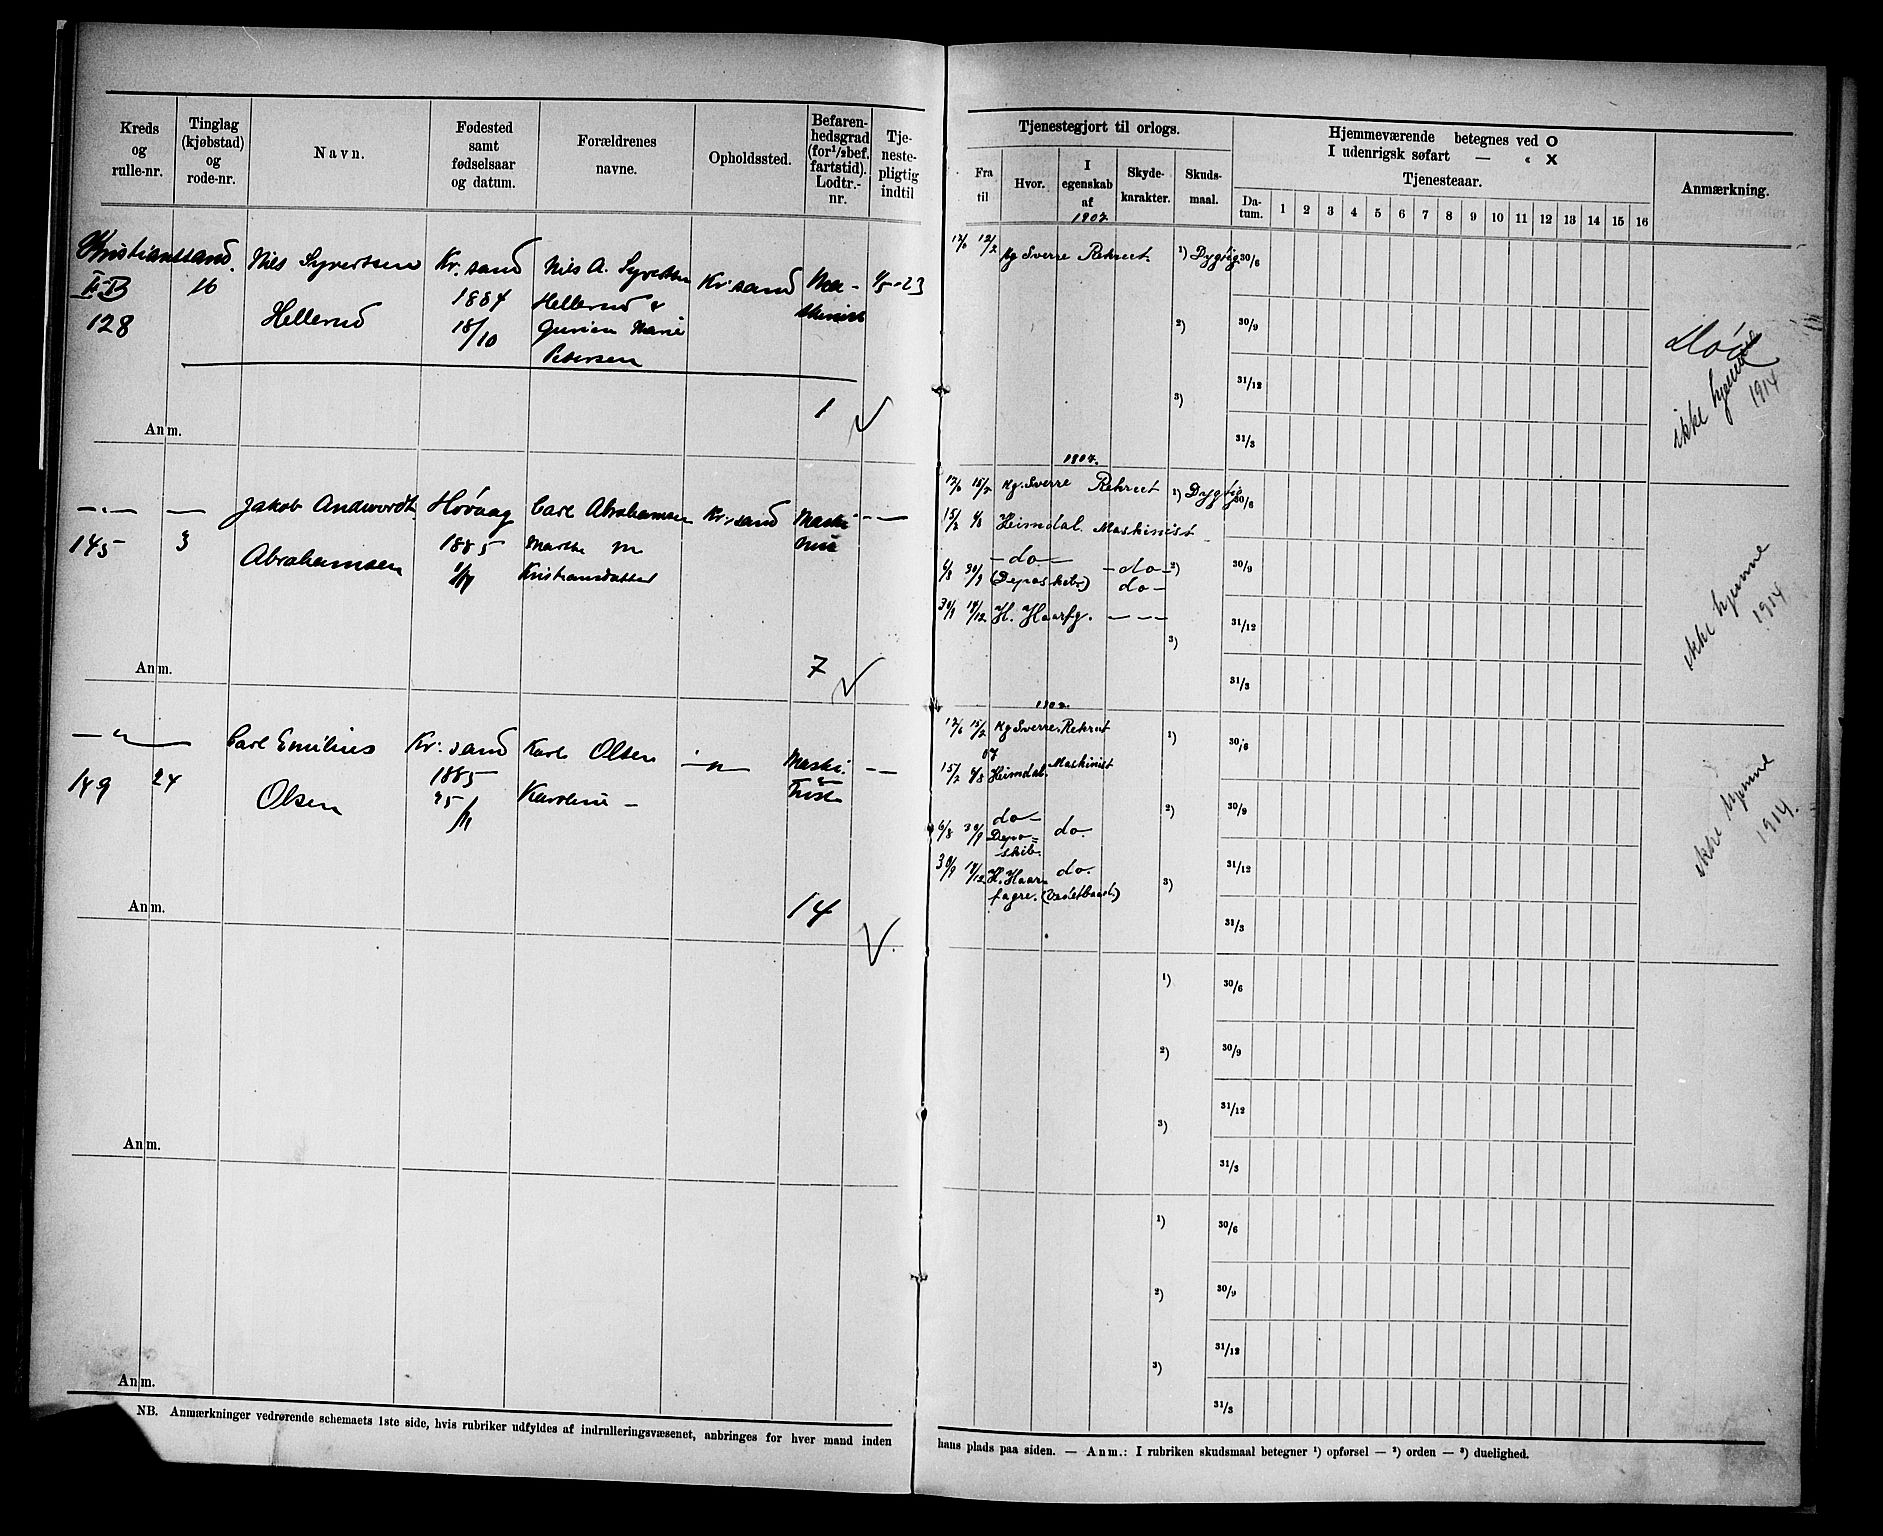 Kreds og rulle-nr.
Tinglag (kjøbstad) og rode-nr.
Navn.
Fødested samt fødselsaar og datum.
Forældrenes navne.
Opholdssted.
Befarenhedsgrad (for 1/2 bef. fartstid). Lodtr.-nr.
Tjenestepligtig indtil
Tjenestegjort til orlogs.
Fra til
Hvor.
I egenskab af
Skydekarakter.
Skudsmaal.
Hjemmeværende betegnes ved O
I udenrigsk søfart — « X
Tjenesteaar.
Datum.
1 2 3 4 5 6 7 8 9 10 11 12 13 14 15 16
Anmærkning.
Kristianssand.
II B
128
16
Nils Syvertsen
Hellerud
Kr. sand
1884
18/10
Nils A. Syvertsen
Hellerud &
Marie
Petersen
Kr. sand
Maskinist
1/5-23
1
Anm.
1907
12/2
Kg Sverre Rekrut.
1) Dygtig
2)
3)
30/6
30/9
31/12
31/3
ikke hjemme
1914
145
3
Jakob Andword
Abrahamsen
Høvaag
1885
Carl Abrahamsen
Marthe M
Kristiansdatter
Kr. sand
7
Anm.
1907.
15/2 Kg. Sverre Rekrut
1) Dygtig
15/2 6/8 Heimdal. Maskinist
6/8 30/9 —do— (Deposkib) —do—
do—
30/9 14/12 H. Haarfg. — — —
2)
3)
30/6
30/9
31/12
31/3
ikke hjemme
1914
149
24
Carl Emilius
Olsen
Kr. sand
1885
25/11
Karl Olsen
Karoline —
—"—
14
Anm.
15/2 Kg Sverre. Rekrut
07
15/2 6/8 Heimdal. Maskinist
6/8 30/9 do— Deposkib. do.
30/9 14/12 H. Haarfagre. do. (Vedetbaad)
1)
2)
3)
30/6
30/9
31/12
31/3
ikke hjemme
1914.
Anm.
1)
2)
3)
30/6
30/9
31/12
31/3
Anm.
1)
2)
3)
30/6
30/9
31/12
31/3
NB. Anmærkninger vedrørende schemaets 1ste side, hvis rubriker udfyldes af indrulleringsvæsenet, anbringes for hver mand inden
hans plads paa siden. — Anm.: I rubriken skudsmaal betegner 1) opførsel — 2) orden — 3) duelighed.